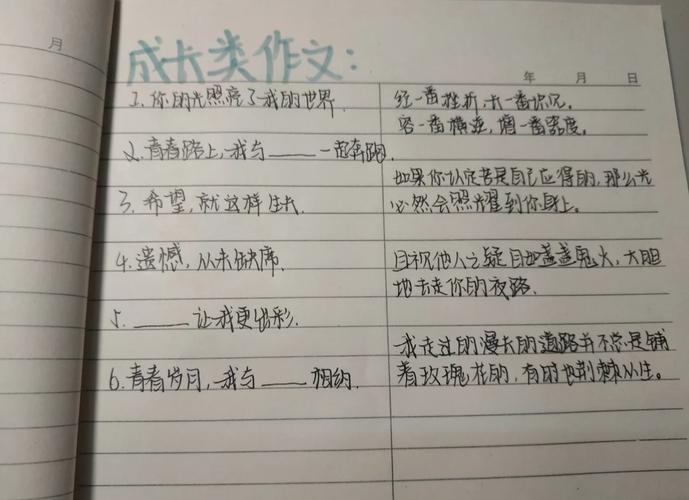 月
成长类作文：
年 月 日
1. 你的光照亮了我的世界.
2. 青春路上,我与____一起奔跑.
3. 希望,就这样生长.
4. 遗憾,从未缺席.
5. ____让我更出彩.
6. 青春岁月,我与____相约.
经一番挫折,长一番识见.
容一番横逆,增一番器度。
如果你认定苦是自己应得的,那么光
必然会照耀到你身上。
且视他人之疑目如盏盏鬼火,大胆
地去走你的夜路.
我走过的漫长的道路并不总是铺
着玫瑰花的,有时也荆棘丛生。